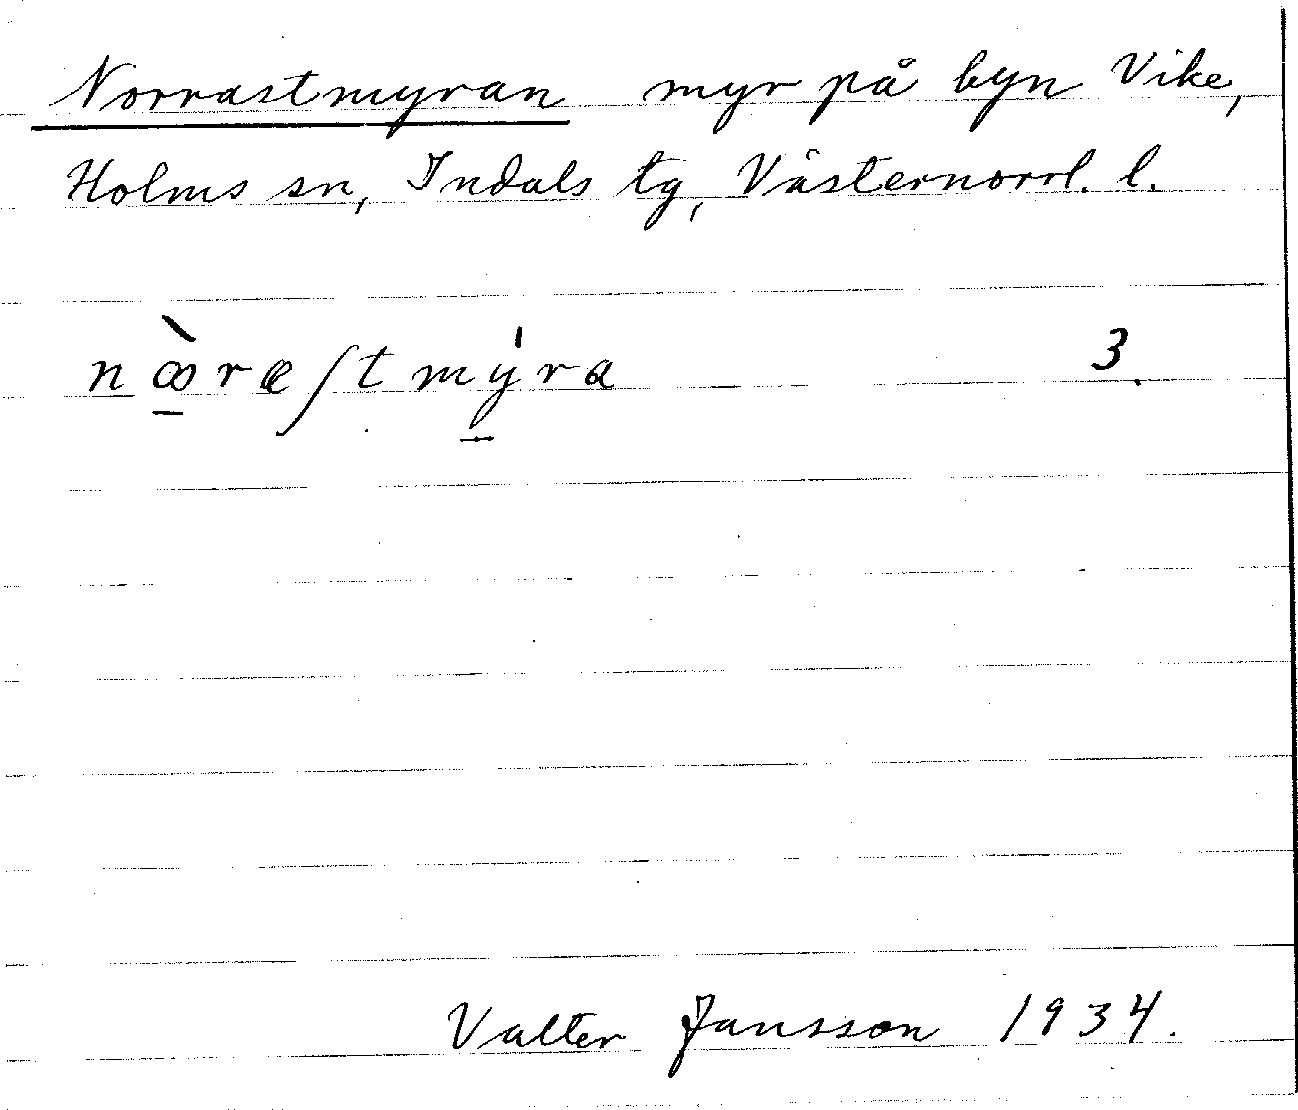 Norrastmyran myr på byn Vike,
Holms sn, Indals tg, Västernorrl. l.
nꝏ̀ræʃtmýra 3.
Valter Jansson 1934.